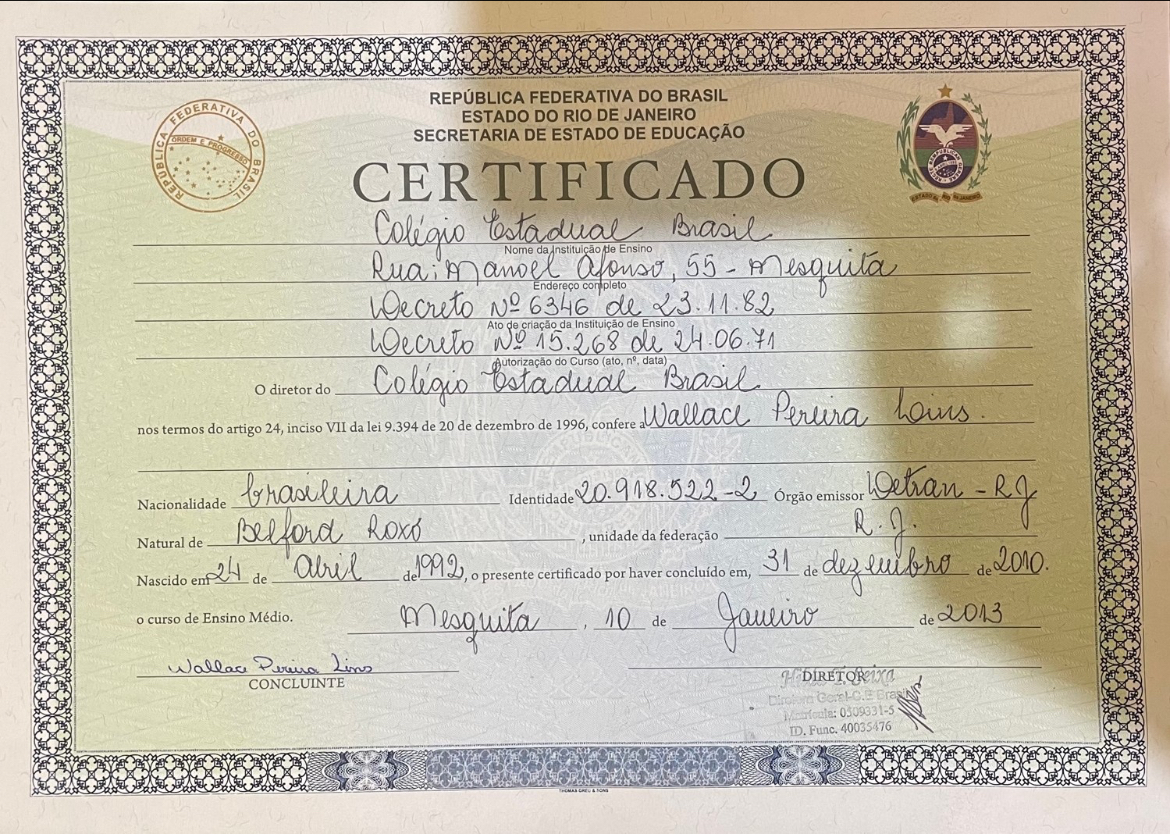 REPÚBLICA FEDERATIVA DO BRASIL
ORDEM E PROGRESSO
REPÚBLICA FEDERATIVA DO BRASIL
ESTADO DO RIO DE JANEIRO
SECRETARIA DE ESTADO DE EDUCAÇÃO
CERTIFICADO
Colégio Estadual Brasil
Nome da Instituição de Ensino
Rua: Manoel Afonso, 55 - Mesquita
Endereço completo
Decreto Nº 6346 de 23.11.82
Ato de criação da Instituição de Ensino
Decreto Nº 15.268 de 24.06.71
Autorização do Curso (ato, nº, data)
O diretor do Colégio Estadual Brasil
nos termos do artigo 24, inciso VII da lei 9.394 de 20 de dezembro de 1996, confere a Wallace Pereira Lins.
Nacionalidade brasileira Identidade 20.918.522-2 Órgão emissor Detran - RJ
Natural de Belford Roxo , unidade da federação R.J.
Nascido em 24 de Abril de 1992, o presente certificado por haver concluído em, 31 de dezembro de 2010.
o curso de Ensino Médio. Mesquita , 10 de Janeiro de 2013
Wallace Pereira Lins
CONCLUINTE
DIRETOR
Diretora Geral-C.E Brasil
Matrícula: 0509331-5
ID. Func. 40035476
THOMAS GREG & SONS